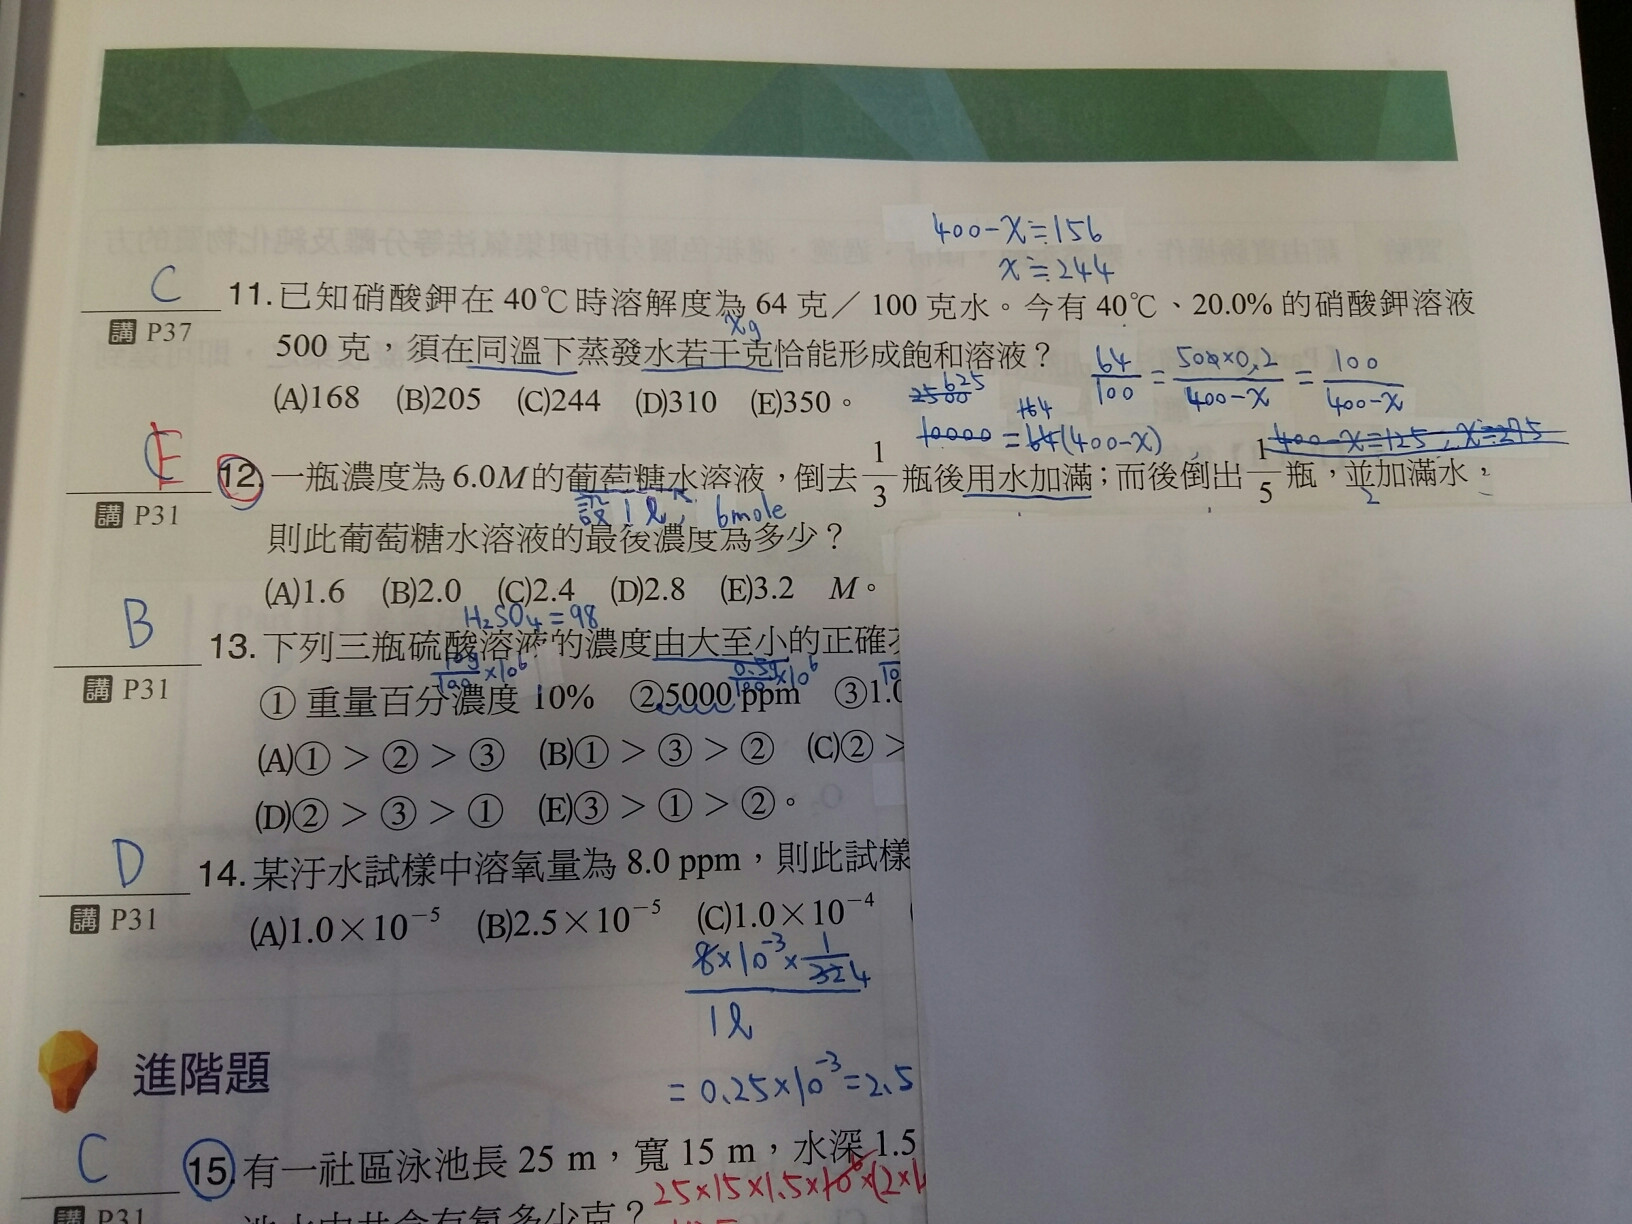 400-x≒156
x≒244
C
11.已知硝酸鉀在 40℃時溶解度為 64 克／ 100 克水。今有 40℃、20.0% 的硝酸鉀溶液
講 P37
xg
500 克，須在同溫下蒸發水若干克恰能形成飽和溶液？
64/100 = 500×0.2/400-x = 100/400-x
(A)168 (B)205 (C)244 (D)310 (E)350。
2500 625
164
10000 = 64(400-x)
400-x=125, x=275
E
12.一瓶濃度為 6.0M 的葡萄糖水溶液，倒去 1/3 瓶後用水加滿；而後倒出 1/5 瓶，並加滿水，
講 P31
設 1ℓ, 6mole
2
則此葡萄糖水溶液的最後濃度為多少？
(A)1.6 (B)2.0 (C)2.4 (D)2.8 (E)3.2 M。
H₂SO₄=98
B
13.下列三瓶硫酸溶液的濃度由大至小的正確
講 P31
10g/100×10⁶ 0.5g/100×10⁶
① 重量百分濃度 10% ②5000 ppm ③1.0
(A)① > ② > ③ (B)① > ③ > ② (C)② >
(D)② > ③ > ① (E)③ > ① > ②。
D
14.某汙水試樣中溶氧量為 8.0 ppm，則此試樣
講 P31
(A)1.0×10⁻⁵ (B)2.5×10⁻⁵ (C)1.0×10⁻⁴
8×10⁻³×1/32 4
1ℓ
= 0.25×10⁻³=2.5
進階題
C
15.有一社區泳池長 25 m，寬 15 m，水深 1.5
講 P31
25×15×1.5×10⁶×(2×1
池水中共含有氯多少克？